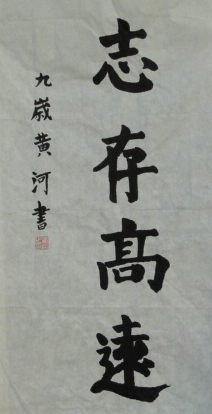 志存高遠
九歲黃河書